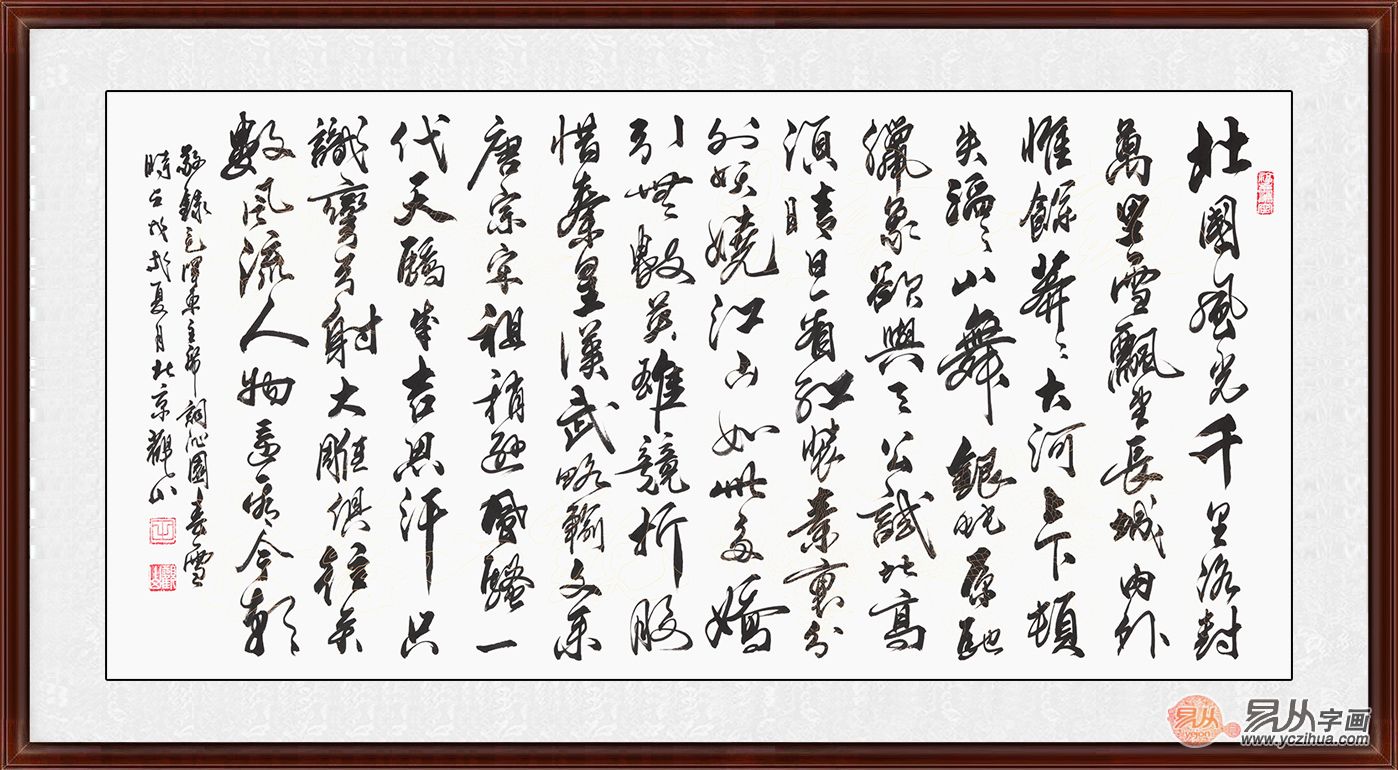 北國風光千里冰封
萬里雪飄望長城內外
惟餘莽〻大河上下頓
失滔〻山舞銀蛇原馳
臘象欲與天公試比高
須晴日看紅裝素裹分
外妖嬈江山如此多嬌
引無數英雄競折腰
惜秦皇漢武略輸文采
唐宗宋祖稍遜風騷一
代天驕成吉思汗只
識彎弓射大雕俱往矣
數風流人物還看今朝
敬錄毛澤東主席詞沁園春雪
時在戊戌夏月北京觀山
易从
易从字画
www.yczihua.com